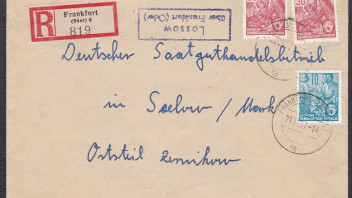 R
Frankfurt
(Oder) 6
819
Lossow
über Frankfurt (Oder)
30
10
Deutscher Saatguthandelsbetrieb
in Seelow / Mark
Oststeil Zernikow